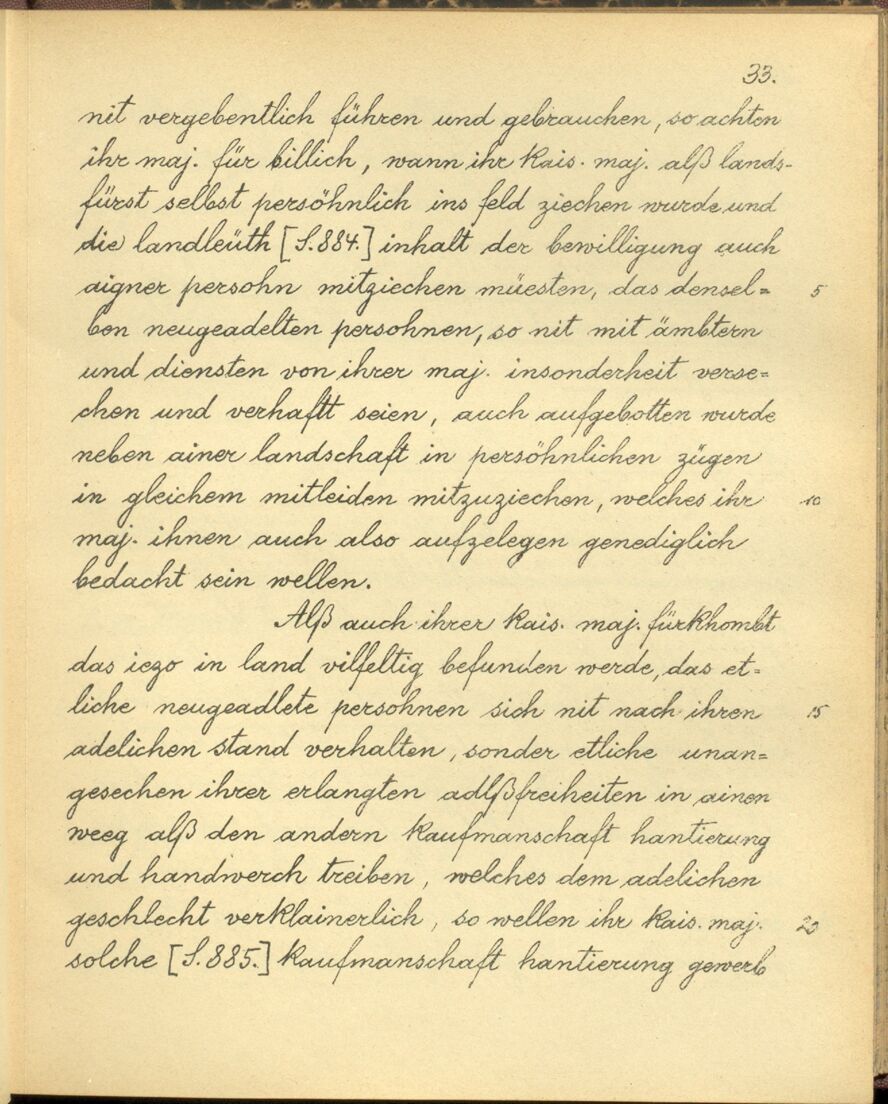 33.
nit vergebentlich führen und gebrauchen, so achten
ihr maj. für billich, wann ihr kais. maj. alß lands-
fürst selbst persöhnlich ins feld ziechen wurde und
die landleüth [S. 884.] inhalt der bewilligung auch
aigner persohn mitziechen müesten, das densel= 5
ben neugeadelten persohnen, so nit mit ämbtern
und diensten von ihrer maj. insonderheit verse=
chen und verhaftt seien, auch aufgebotten wurde
neben ainer landschaft in persöhnlichen zügen
in gleichem mitleiden mitzuziechen, welches ihr 10
maj. ihnen auch also aufzelegen genediglich
bedacht sein wellen.
Alß auch ihrer kais. maj. fürkhombt
das iezo in land vilfeltig befunden werde, das et=
liche neugeadlete persohnen sich nit nach ihren 15
adelichen stand verhalten, sonder etliche unan=
gesechen ihrer erlangten adlßfreiheiten in ainen
weeg alß den andern kaufmanschaft hantierung
und handwerch treiben, welches dem adelichen
geschlecht verklainerlich, so wellen ihr kais. maj. 20
solche [S. 885.] kaufmanschaft hantierung gewerb